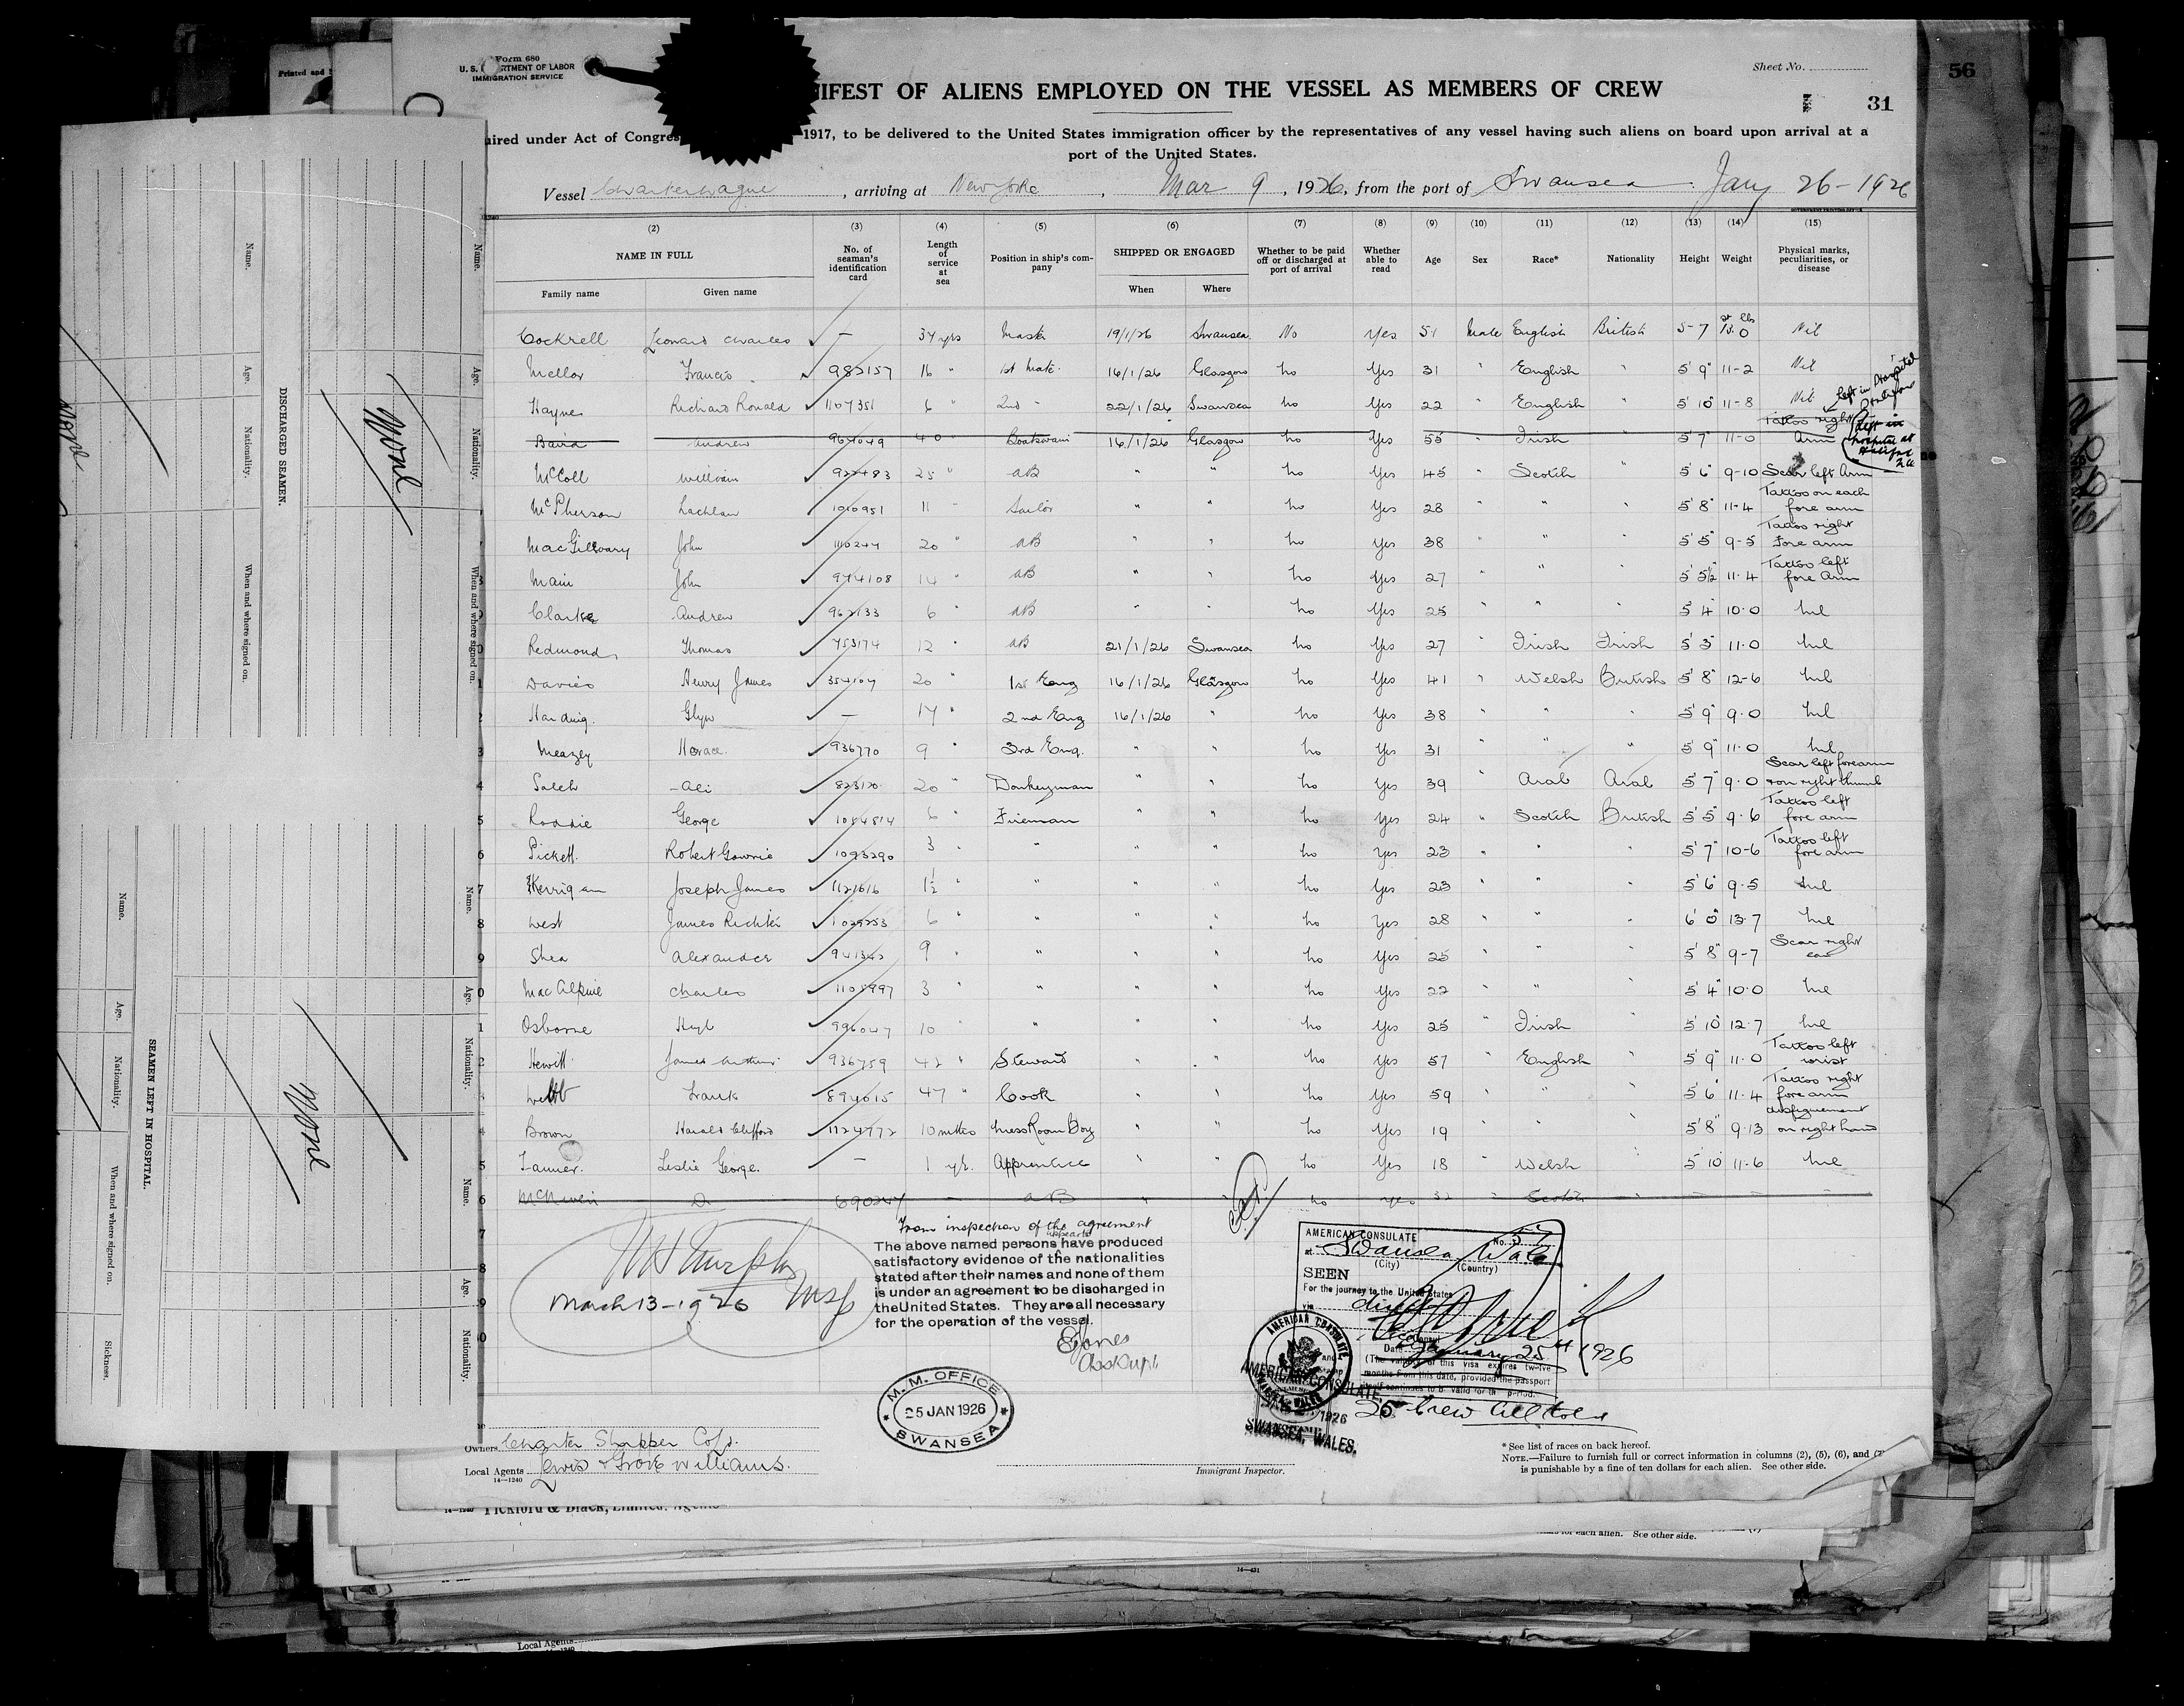 Form 680
U. S. RTMENT OF LABOR
IMMIGRATION SERVICE
Printed and
Sheet No.
56
31
IFEST OF ALIENS EMPLOYED ON THE VESSEL AS MEMBERS OF CREW
uired under Act of Congres 1917, to be delivered to the United States immigration officer by the representatives of any vessel having such aliens on board upon arrival at a
port of the United States.
Vessel , arriving at New York , Mar 9 , 1926, from the port of Swansea. Jany 26-1926
(2) (3) (4) (5) (6) (7) (8) (9) (10) (11) (12) (13) (14) (15)
NAME IN FULL No. of seaman's identification card Length of service at sea Position in ship's company SHIPPED OR ENGAGED Whether to be paid off or discharged at port of arrival Whether able to read Age Sex Race* Nationality Height Weight Physical marks, peculiarities, or disease
Family name Given name When Where
Cockrell Leonard Charles — 34 yrs Master 19/1/26 Swansea No Yes 51 Male English British 5-7 st lbs 13.0 Nil
Mellor Francis 982157 16 " 1st Mate 16/1/26 Glasgow no Yes 31 " English " 5' 9" 11-2 Nil
Hayne Richard Ronald 1107351 6 " 2nd " 22/1/26 Swansea no Yes 22 " English " 5' 10" 11-8 Nil
left in Hospital
Baird Andrew 964049 40 " Boatswain 16/1/26 Glasgow no Yes 55 " Irish " 5' 7" 11-0 Tattoo right Arm
left in hospital at Halifax
McColl William 922483 25 " AB " " no Yes 45 " Scotch " 5' 6" 9-10 Scar left Arm
McPherson Lachlan 1010951 11 " Sailor " " no Yes 28 " " " 5' 8" 11-4 Tattoo on each fore arm
MacGillvary John 1110244 20 " AB " " no Yes 38 " " " 5' 5" 9-5 Tattoo right Fore arm
Main John 974108 14 " AB " " no Yes 27 " " " 5' 5½ 11-4 Tattoo left fore Arm
Clarke Andrew 962133 6 " AB " " no Yes 25 " " " 5' 4" 10.0 nil
Redmond Thomas 753174 12 " AB 21/1/26 Swansea no Yes 27 " Irish Irish 5' 3" 11.0 nil
Davies Henry James 354104 20 " 1st Eng 16/1/26 Glasgow no Yes 41 " Welsh British 5' 8" 12-6 nil
Harding Glyn — 14 " 2nd Eng 16/1/26 " no Yes 38 " " " 5' 9" 9.0 nil
Meazey Horace 936770 9 " 3rd Eng. " " no Yes 31 " " " 5' 9" 11.0 nil
Saleh Ali 823120 20 " Donkeyman " " no Yes 39 " Arab Arab 5' 7" 9.0 Scar left forearm + on right thumb
Roddie George 1054814 6 " Fireman " " no Yes 24 " Scotch British 5' 5" 9.6 Tattoo left fore arm
Pickett Robert Gowrie 1093290 3 " " " " no Yes 23 " " " 5' 7" 10-6 Tattoo left fore arm
Kerrigan Joseph James 1121616 1½ " " " " no Yes 23 " " " 5' 6" 9.5 nil
West James Richter 1029253 6 " " " " no Yes 28 " " " 6' 0" 13.7 nil
Shea Alexander 941343 9 " " " " no Yes 25 " " " 5' 8" 9-7 Scar right ear
MacAlpine Charles 1105997 3 " " " " no Yes 22 " " " 5' 4" 10.0 nil
Osborne Hugh 996047 10 " " " " no Yes 25 " Irish " 5' 10 12.7 nil
Hewitt James Arthur 936759 42 " Steward " " no Yes 57 " English " 5' 9" 11.0 Tattoo left wrist
Webb Frank 894615 47 " Cook " " no Yes 59 " " " 5' 6" 11.4 Tattoo right fore arm
Brown Harold Clifford 1124772 10 mths Mess Room Boy " " no Yes 19 " " " 5' 8" 9.13 disfigurement on right hand
Tanner Leslie George — 1 yr. Apprentice " " no Yes 18 " Welsh " 5' 10 11.6 nil
McNiven D. 690247 — AB " no yes 32 " Scotch " — — —
From inspection of the agreement
The above named persons appears have produced
satisfactory evidence of the nationalities
stated after their names and none of them
is under an agreement to be discharged in
the United States. They are all necessary
for the operation of the vessel.
March 13-1926
M. M. OFFICE
25 JAN 1926
SWANSEA
AMERICAN CONSULATE No.
at Swansea Wales
(City) (Country)
SEEN
For the journey to the United States
via direct
Date January 25th 1926
(The validity of this visa expires twelve
months from this date, provided the passport
itself continues to be valid for th period.
AMERICAN CONSULATE
SWANSEA, WALES.
25 Crew all told
Owners Charter Shipping Co Ld.
Local Agents Lewis & Grove Williams.
14—1240
Immigrant Inspector.
*See list of races on back hereof.
NOTE.—Failure to furnish full or correct information in columns (2), (5), (6), and (7)
is punishable by a fine of ten dollars for each alien. See other side.
Pickford & Black, Limited, Agents
for each alien. See other side.
14—431
Local Agents
DISCHARGED SEAMEN.
Name. Age. Nationality. When and where signed on.
None
SEAMEN LEFT IN HOSPITAL.
Name. Age. Nationality. When and where signed on. Sickness.
None